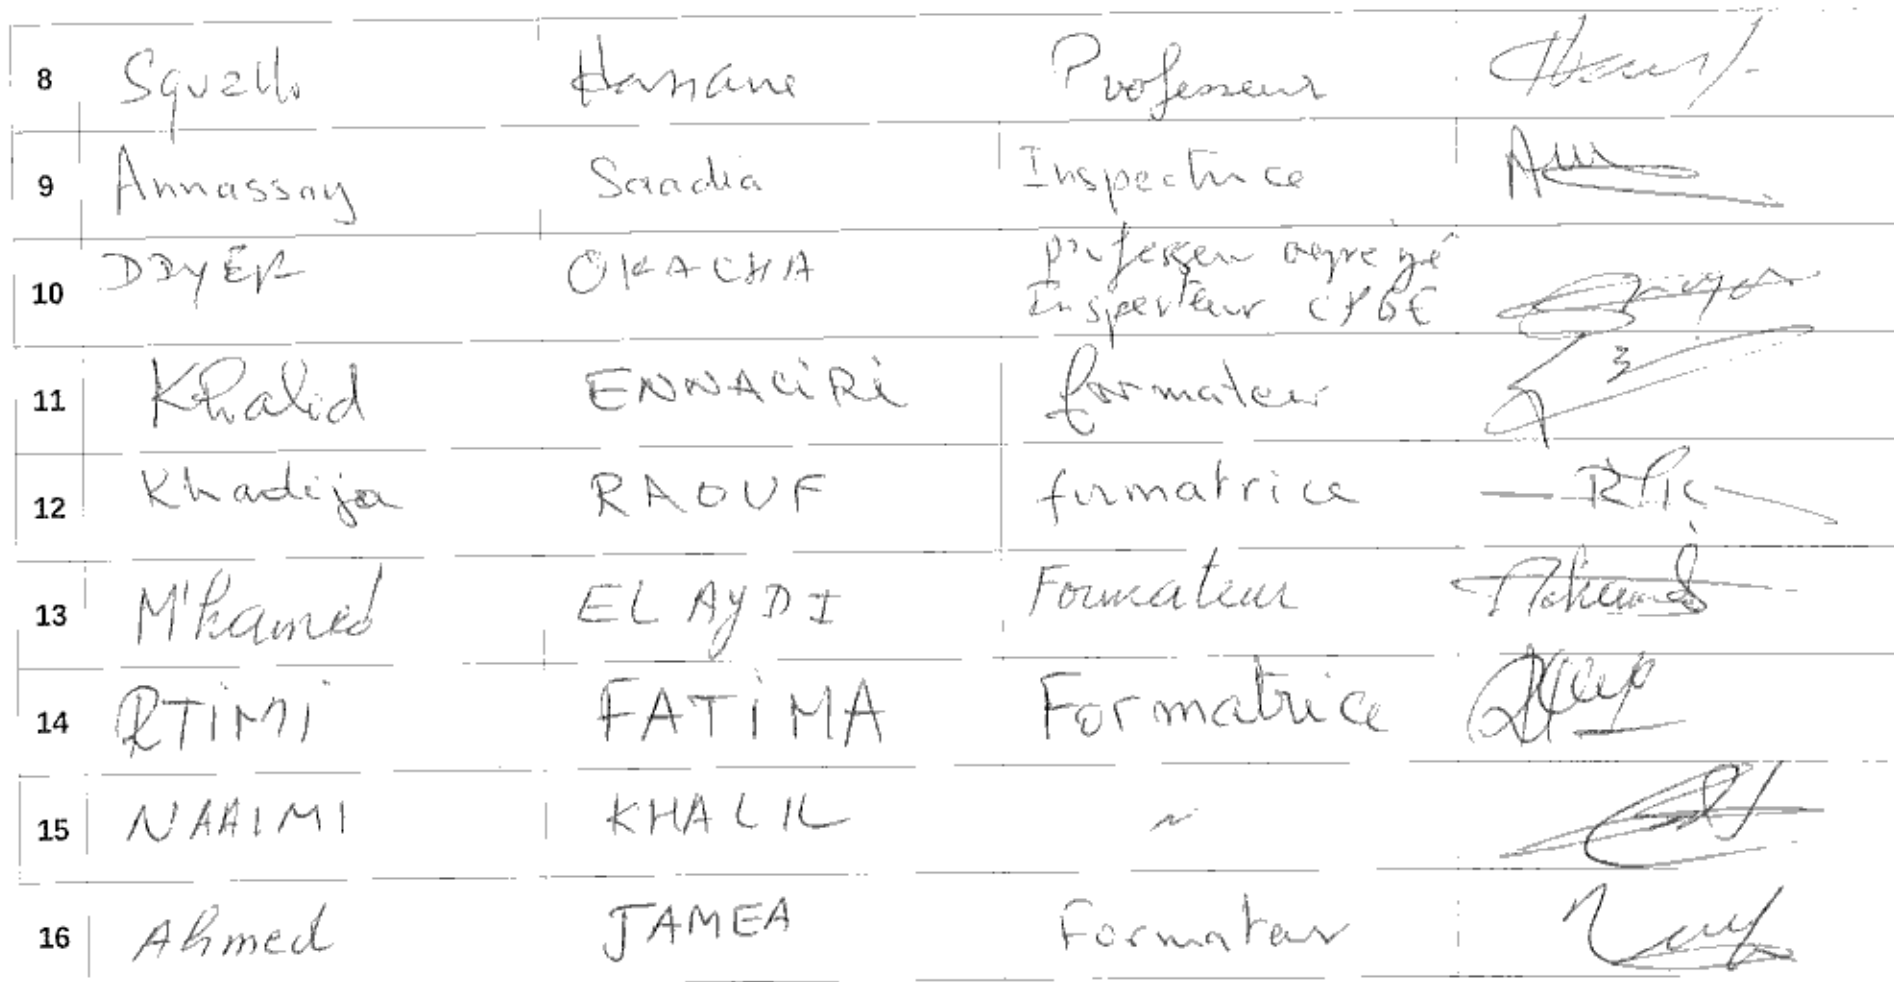 8 Hanane Professeur
9 Annassay Saadia Inspectrice
10 OKACHA professeur agregé
Inspecteur CPGE
11 Khalid ENNACiRi formateur
12 Khadija RAOUF formatrice
13 M'hamed EL AYDI Formateur
14 RTiMi FATiMA Formatrice
15 NAAIMI KHALIL ~
16 Ahmed JAMEA Formateur